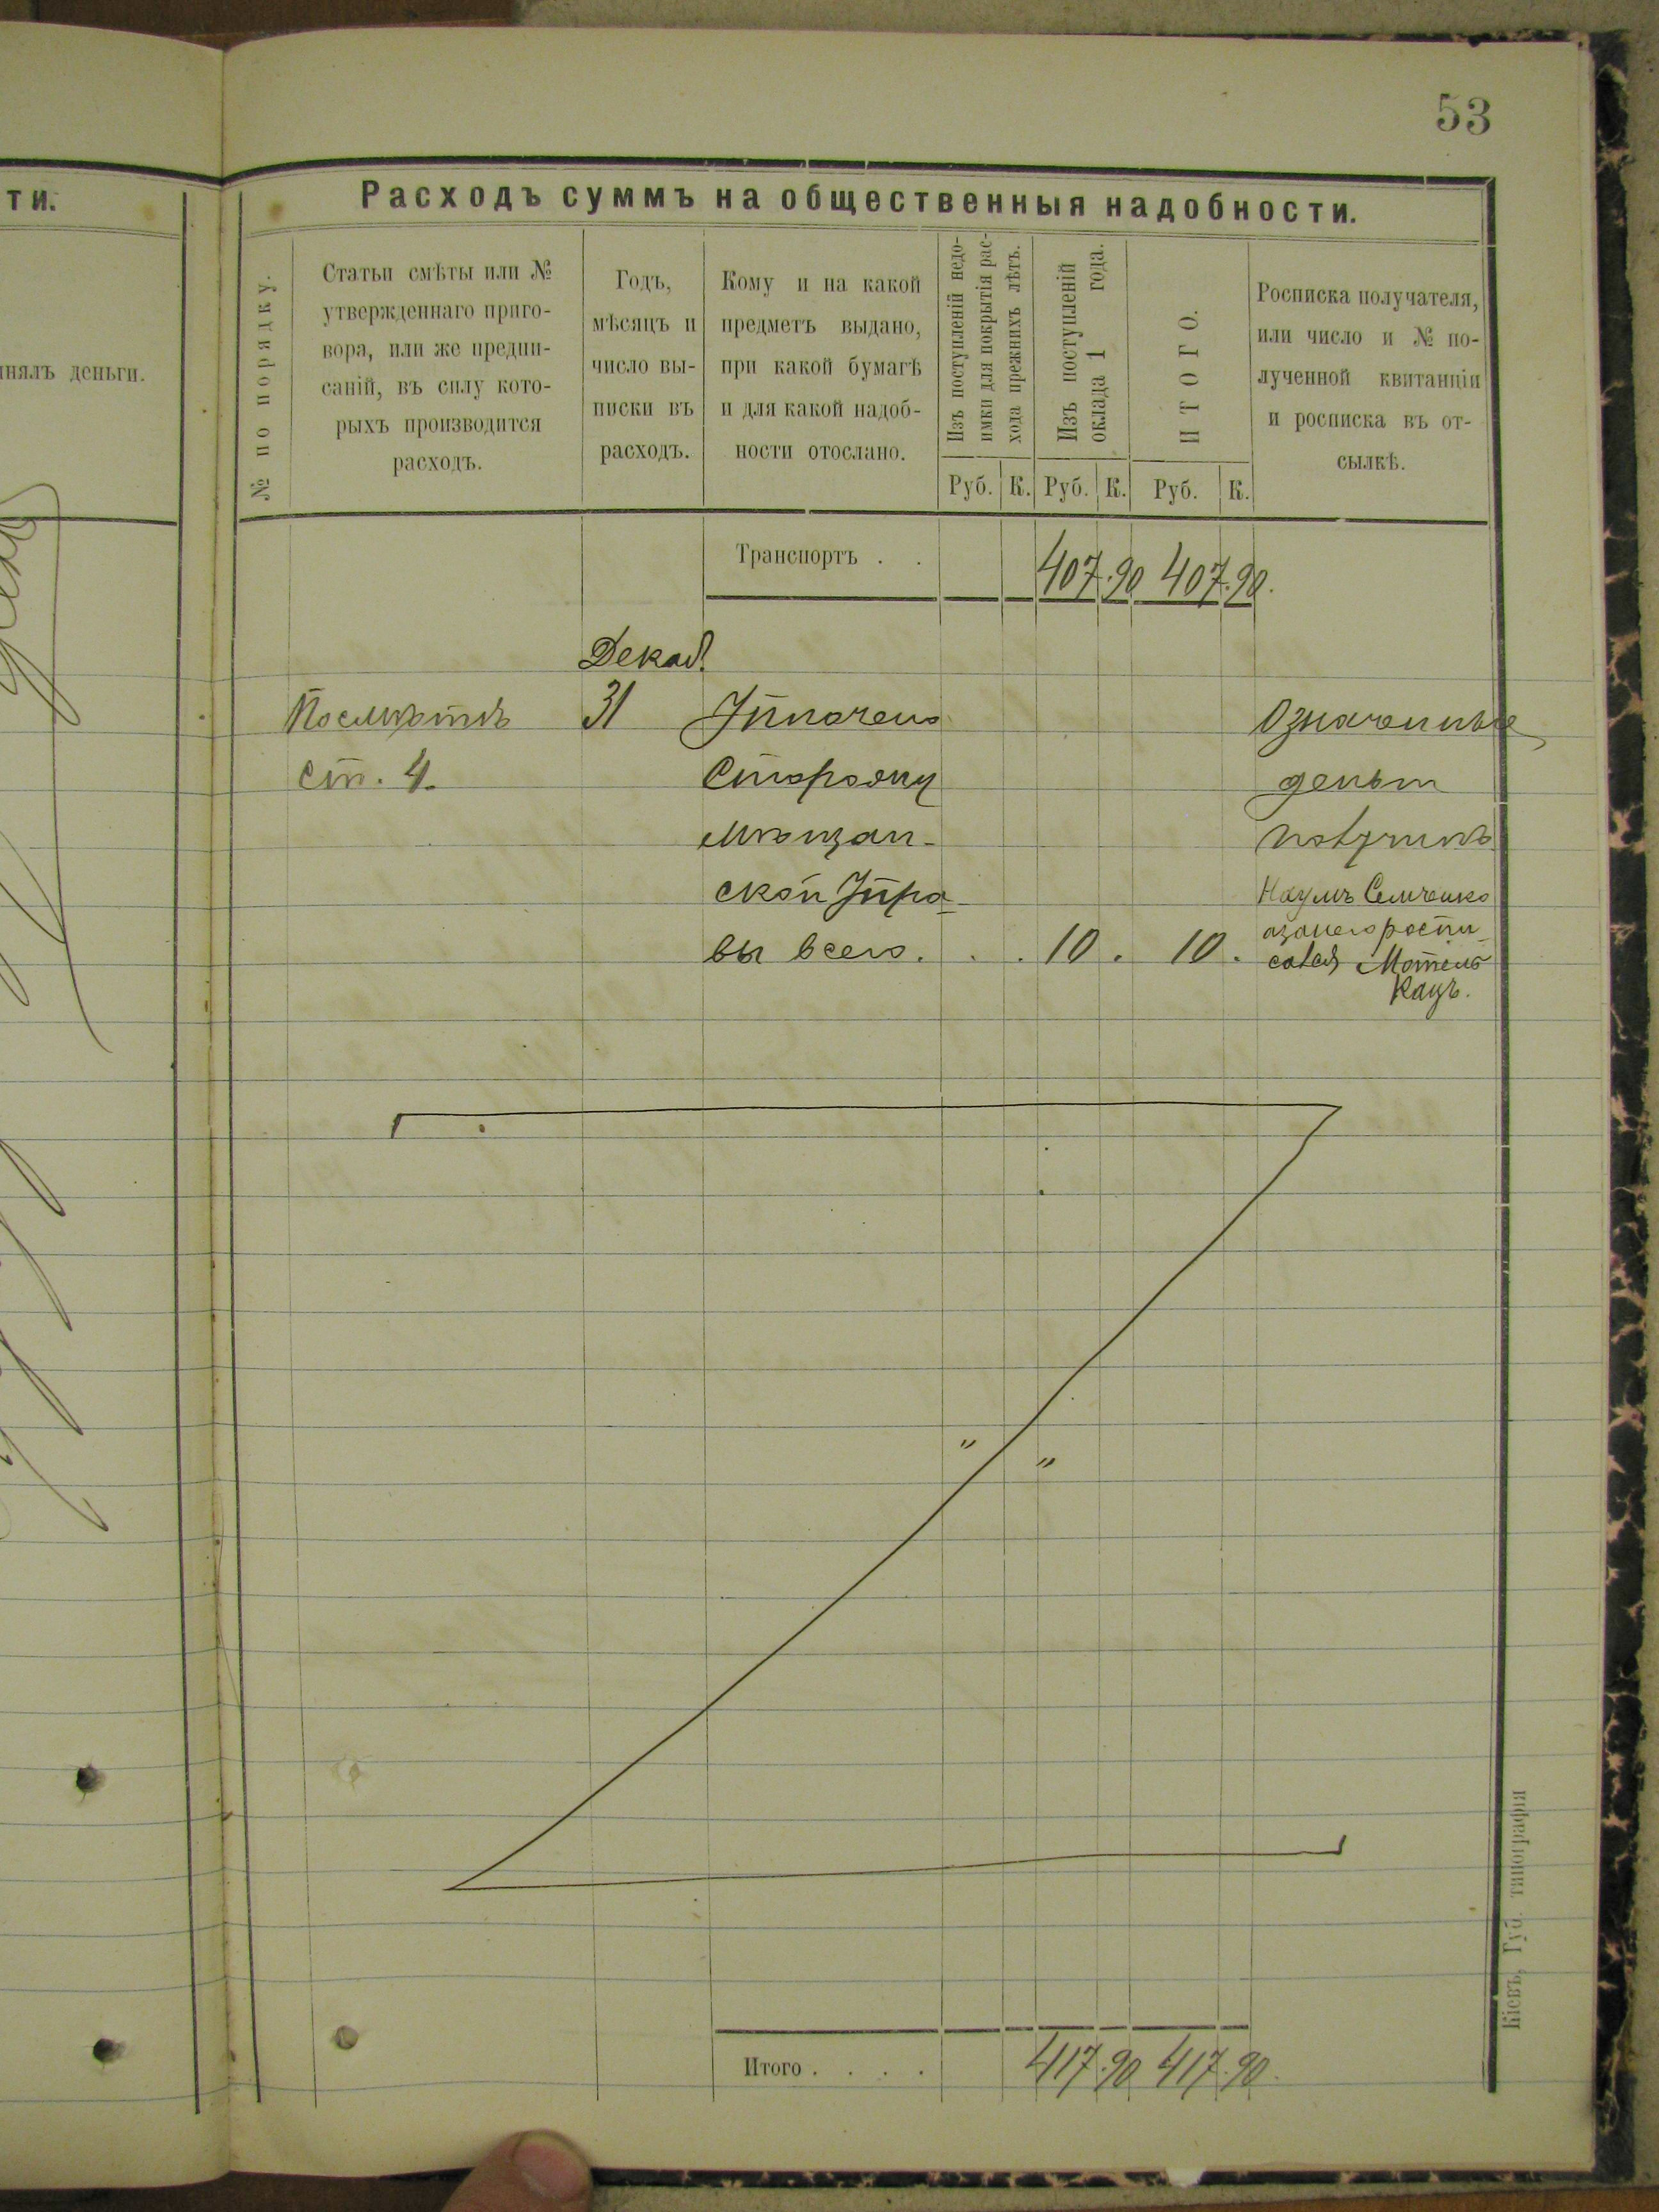 53
ти.
нялъ деньги.
Расходъ суммъ на общественныя надобности.
№ по порядку.
Статьи смѣты или №
утвержденнаго приго-
вора, или же предпи-
саній, въ силу кото-
рыхъ производится
расходъ.
Годъ,
мѣсяцъ и
число вы-
писки въ
расходъ.
Кому и на какой
предметъ выдано,
при какой бумагѣ
и для какой надоб-
ности отослано.
Изъ поступленій недо-
имки для покрытія рас-
хода прежнихъ лѣтъ.
Изъ поступленій
оклада 1 года.
ИТОГО.
Росписка получателя,
или число и № по-
лученной квитанціи
и росписка въ от-
сылкѣ.
Руб. К. Руб. К. Руб. К.
Транспортъ . . 407.90 407.90.
Декаб.
По смѣтѣ 31 Уплачено Означенные
Ст. 4. Сторожу деньги
мѣщан- получилъ
ской Упра- Наумъ Семченко
вы всего . . . 10 . 10 .
а за него роспи-
сался Мотель
Кацъ.
" "
Итого . . . . 417.90 417.90.
Кіевъ, Губ. типографія